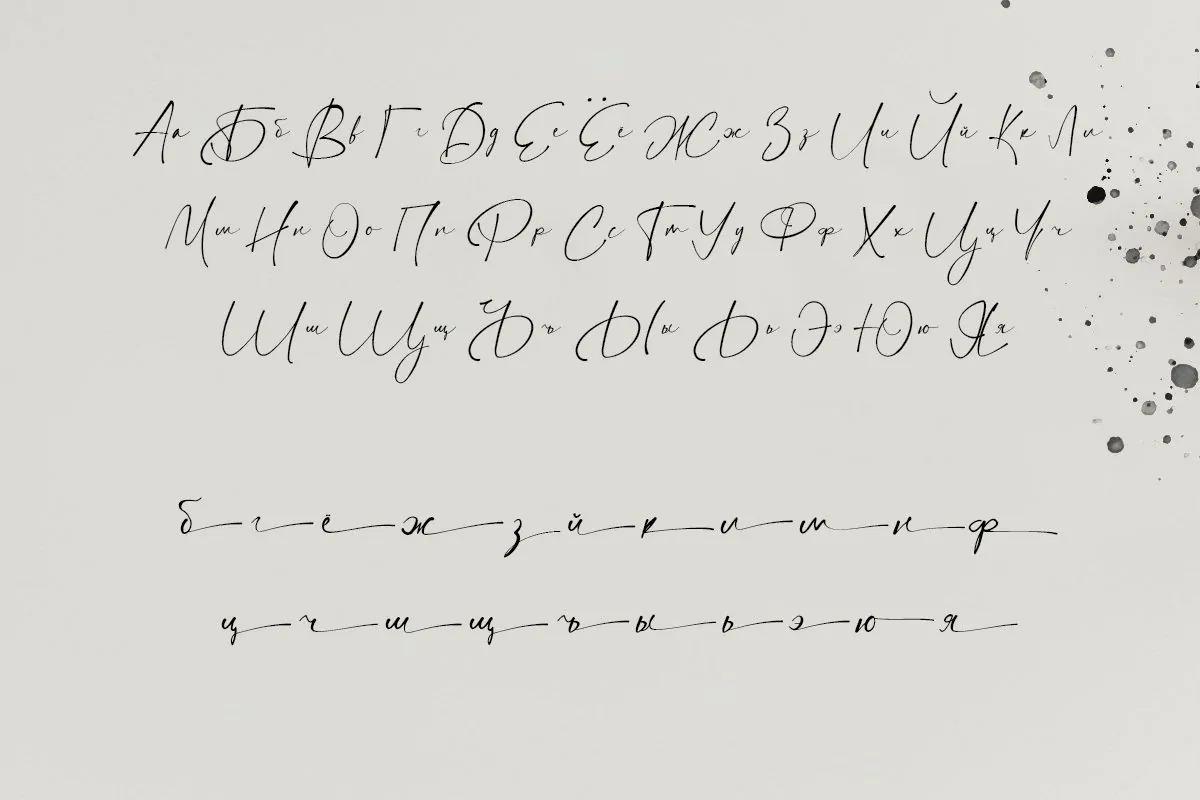 Аа Бб Вв Гг Дд Ее Ёё Жж Зз Ии Йй Кк Лл
Мм Нн Оо Пп Рр Сс Тт Уу Фф Хх Цц Чч
Шш Щщ Ъъ Ыы Ьь Ээ Юю Яя
б г ё ж з й к л м н ф
ц ч ш щ ъ ы ь э ю я